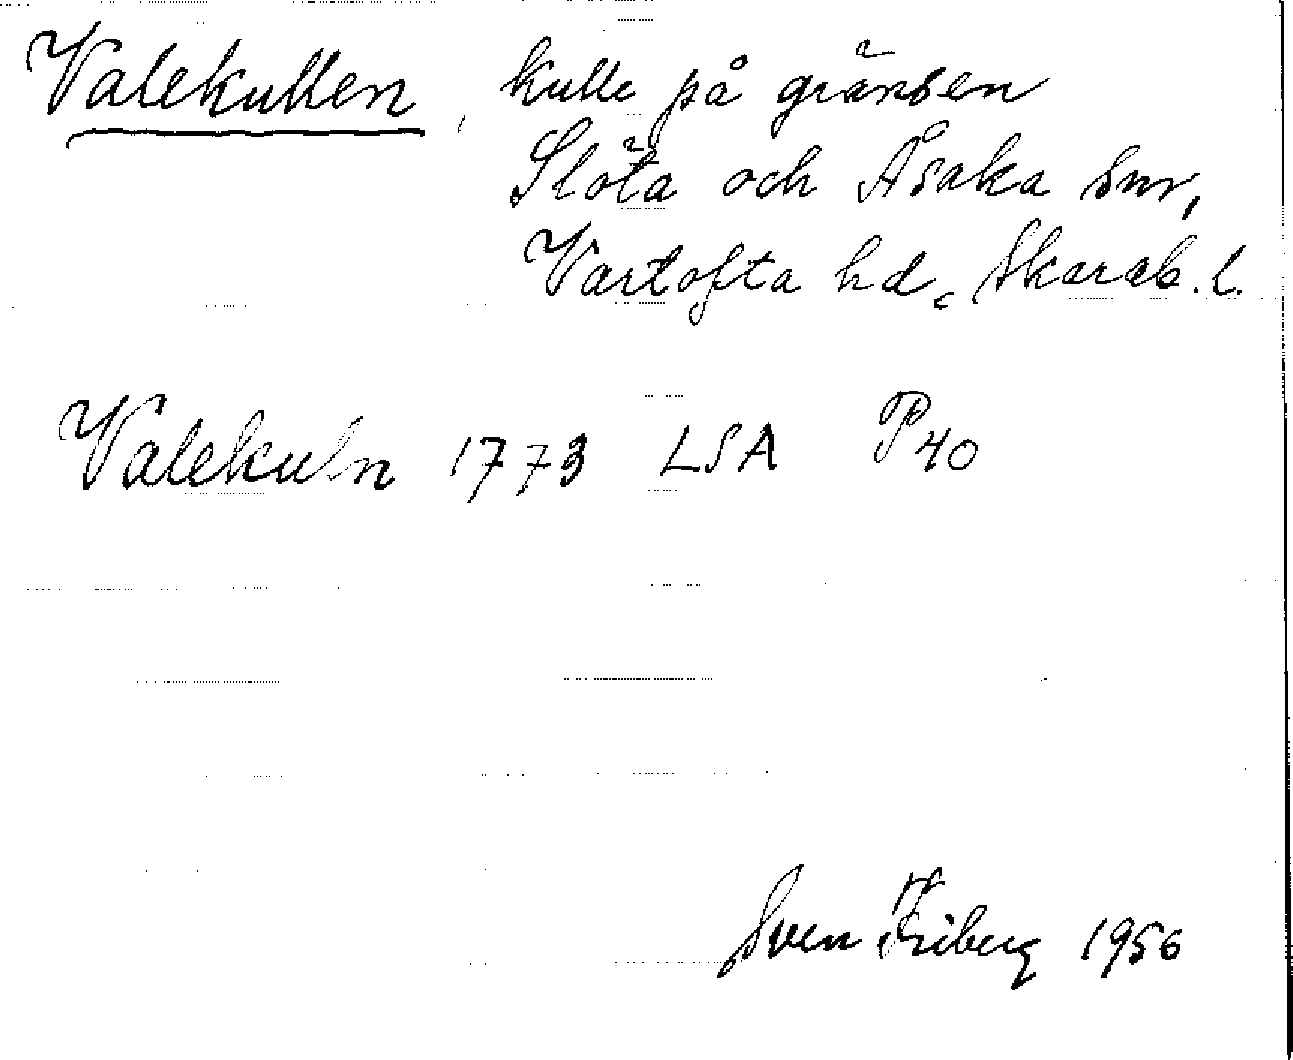 Valekullen, kulle på gränsen
Slöta och Åsaka snr,
Vartofta hd, Skarab. l.
Valekuln 1773 LSA P40
Sven Friberg 1956